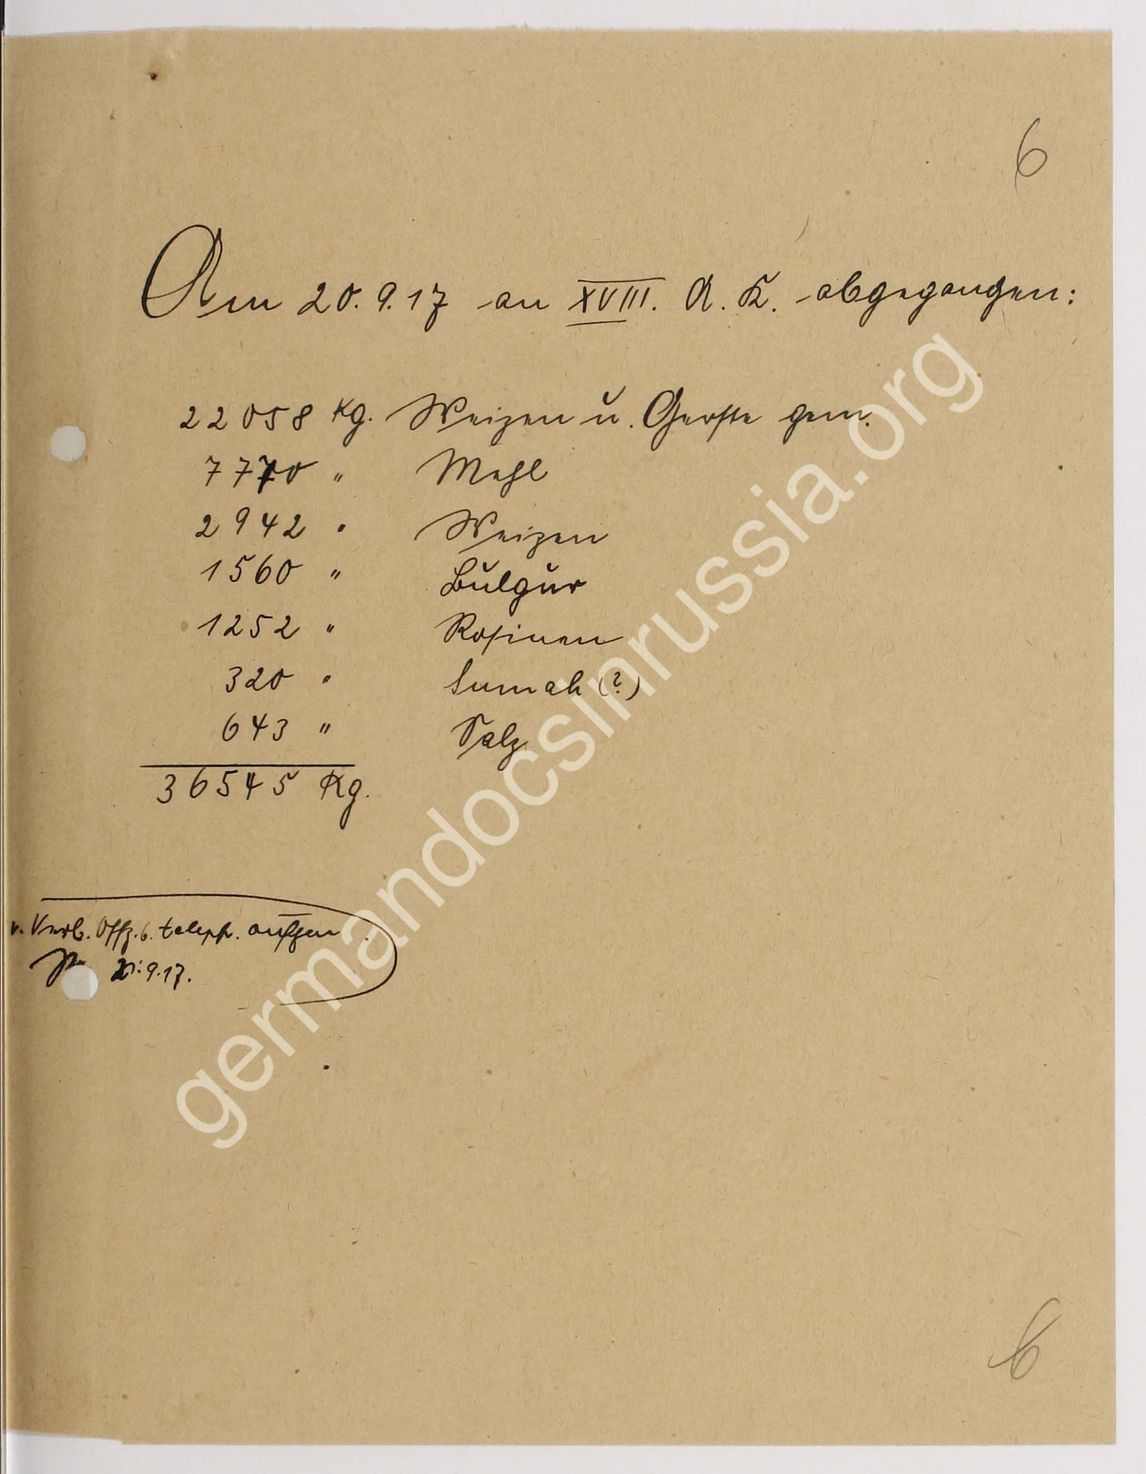 6
Am 20.9.17 an XVIII. A. K. abgegangen:
22058 Kg. Weizen u. Gerste gem.
7770 " Mehl
2942 " Weizen
1560 " Bulgur
1252 " Rosinen
320 " Sumak (?)
643 " Salz
36545 Kg.
v. Verb. Offz. 6. teleph. aufgen
21.9.17.
6
germandocsinrussia.org